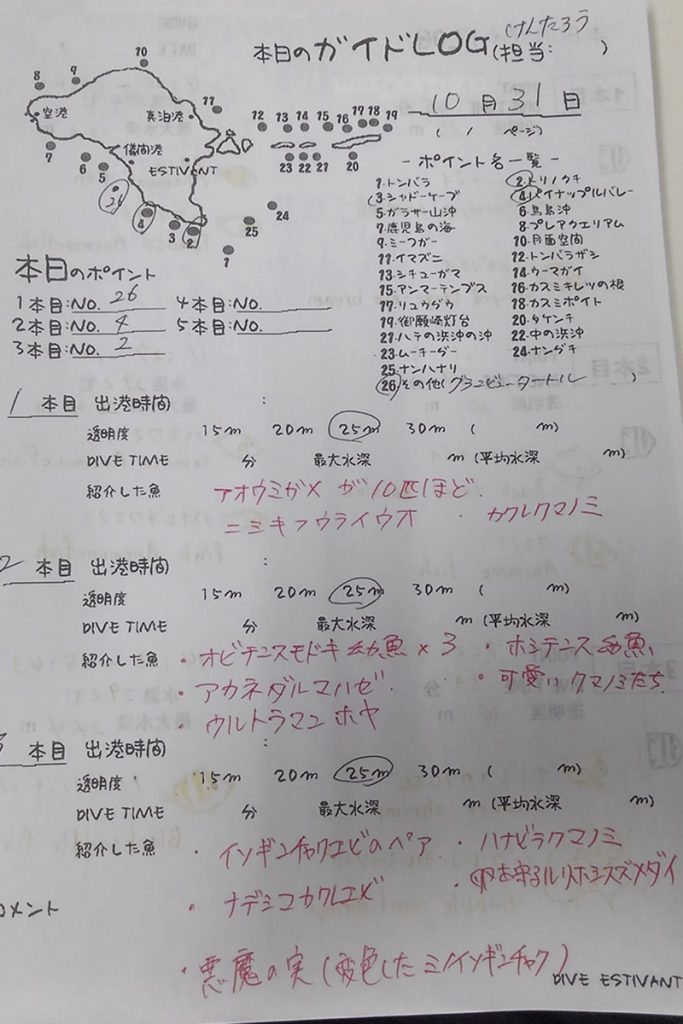 本日のガイドLOG(担当: けんたろう )
10月31日
( / ページ)
10
8
9
空港
真泊港
11
儀間港
7
6
5
ESTIVANT
12 13 14 15 16 17 18 19
23 22 21 20
26
4
3
2
24
25
1
- ポイント名一覧 -
1・トンバラ 2・トリノクチ
3・シャドーケーブ 4・パイナップルバレー
5・ガラサー山沖 6・鳥島沖
7・鹿児島の海 8・プレアクエリアム
9・ミーフガー 10・月面空間
11・イマズニ 12・トンバラザシ
13・シチューガマ 14・ウーマガイ
15・アンマーテンブス 16・カスミキレツの根
17・リュウグウ 18・カスミポイト
19・御願崎灯台 20・タケンチ
21・ハテの浜沖の沖 22・中の浜沖
23・ムーチーダー 24・ナンダキ
25・ナンハナリ
26・その他(グランビュータートル )
本日のポイント
1本目:NO. 26 4本目:NO.
2本目:NO. 4 5本目:NO.
3本目:NO. 2
1本目 出港時間 :
透明度 15m 20m 25m 30m ( m)
DIVE TIME 分 最大水深 m (平均水深 m)
紹介した魚 アオウミガメ が10匹ほど.
ニシキフウライウオ ・ カクレクマノミ
2本目 出港時間 :
透明度 15m 20m 25m 30m ( m)
DIVE TIME 分 最大水深 m (平均水深 m)
紹介した魚 ・オビテンスモドキ 幼魚×3 ・ホシテンス幼魚
・アカネダルマハゼ. ・可愛いクマノミたち.
・ウルトラマンホヤ
3本目 出港時間 :
透明度 15m 20m 25m 30m ( m)
DIVE TIME 分 最大水深 m (平均水深 m)
紹介した魚 ・イソギンチャクエビのペア ・ハナビラクマノミ
・ナデシコカクレエビ ・卵を守るルリホシスズメダイ
コメント
・悪魔の実(変色したミノイソギンチャク)
DIVE ESTIVANT